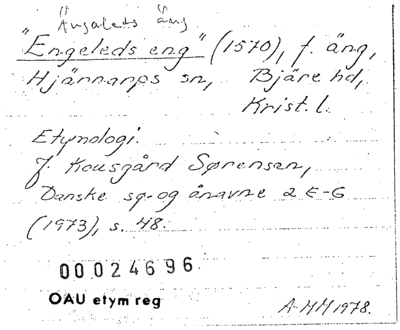 "Ängalets äng
"Engeleds eng" (1570), f. äng,
Hjärnarps sn, Bjäre hd,
Krist. l.
Etymologi.
J. Kousgård Sørensen,
Danske sø- og ånavne 2 E-G
(1973), s. 48.
00024696
OAU etym reg
A-MM 1978.